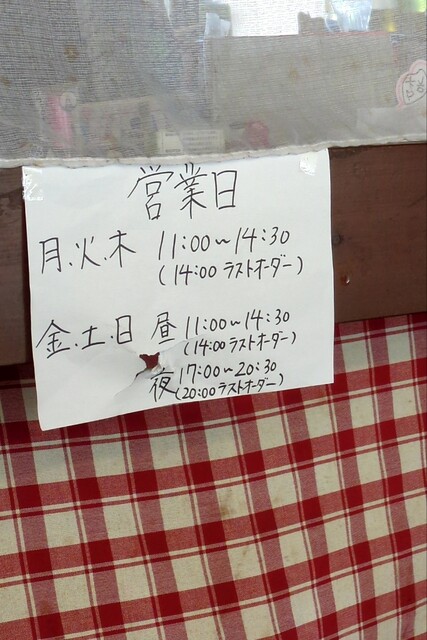 営業日
月.火.木 11:00~14:30
(14:00 ラストオーダー)
金.土.日 昼 11:00~14:30
(14:00 ラストオーダー)
夜 17:00~20:30
(20:00 ラストオーダー)